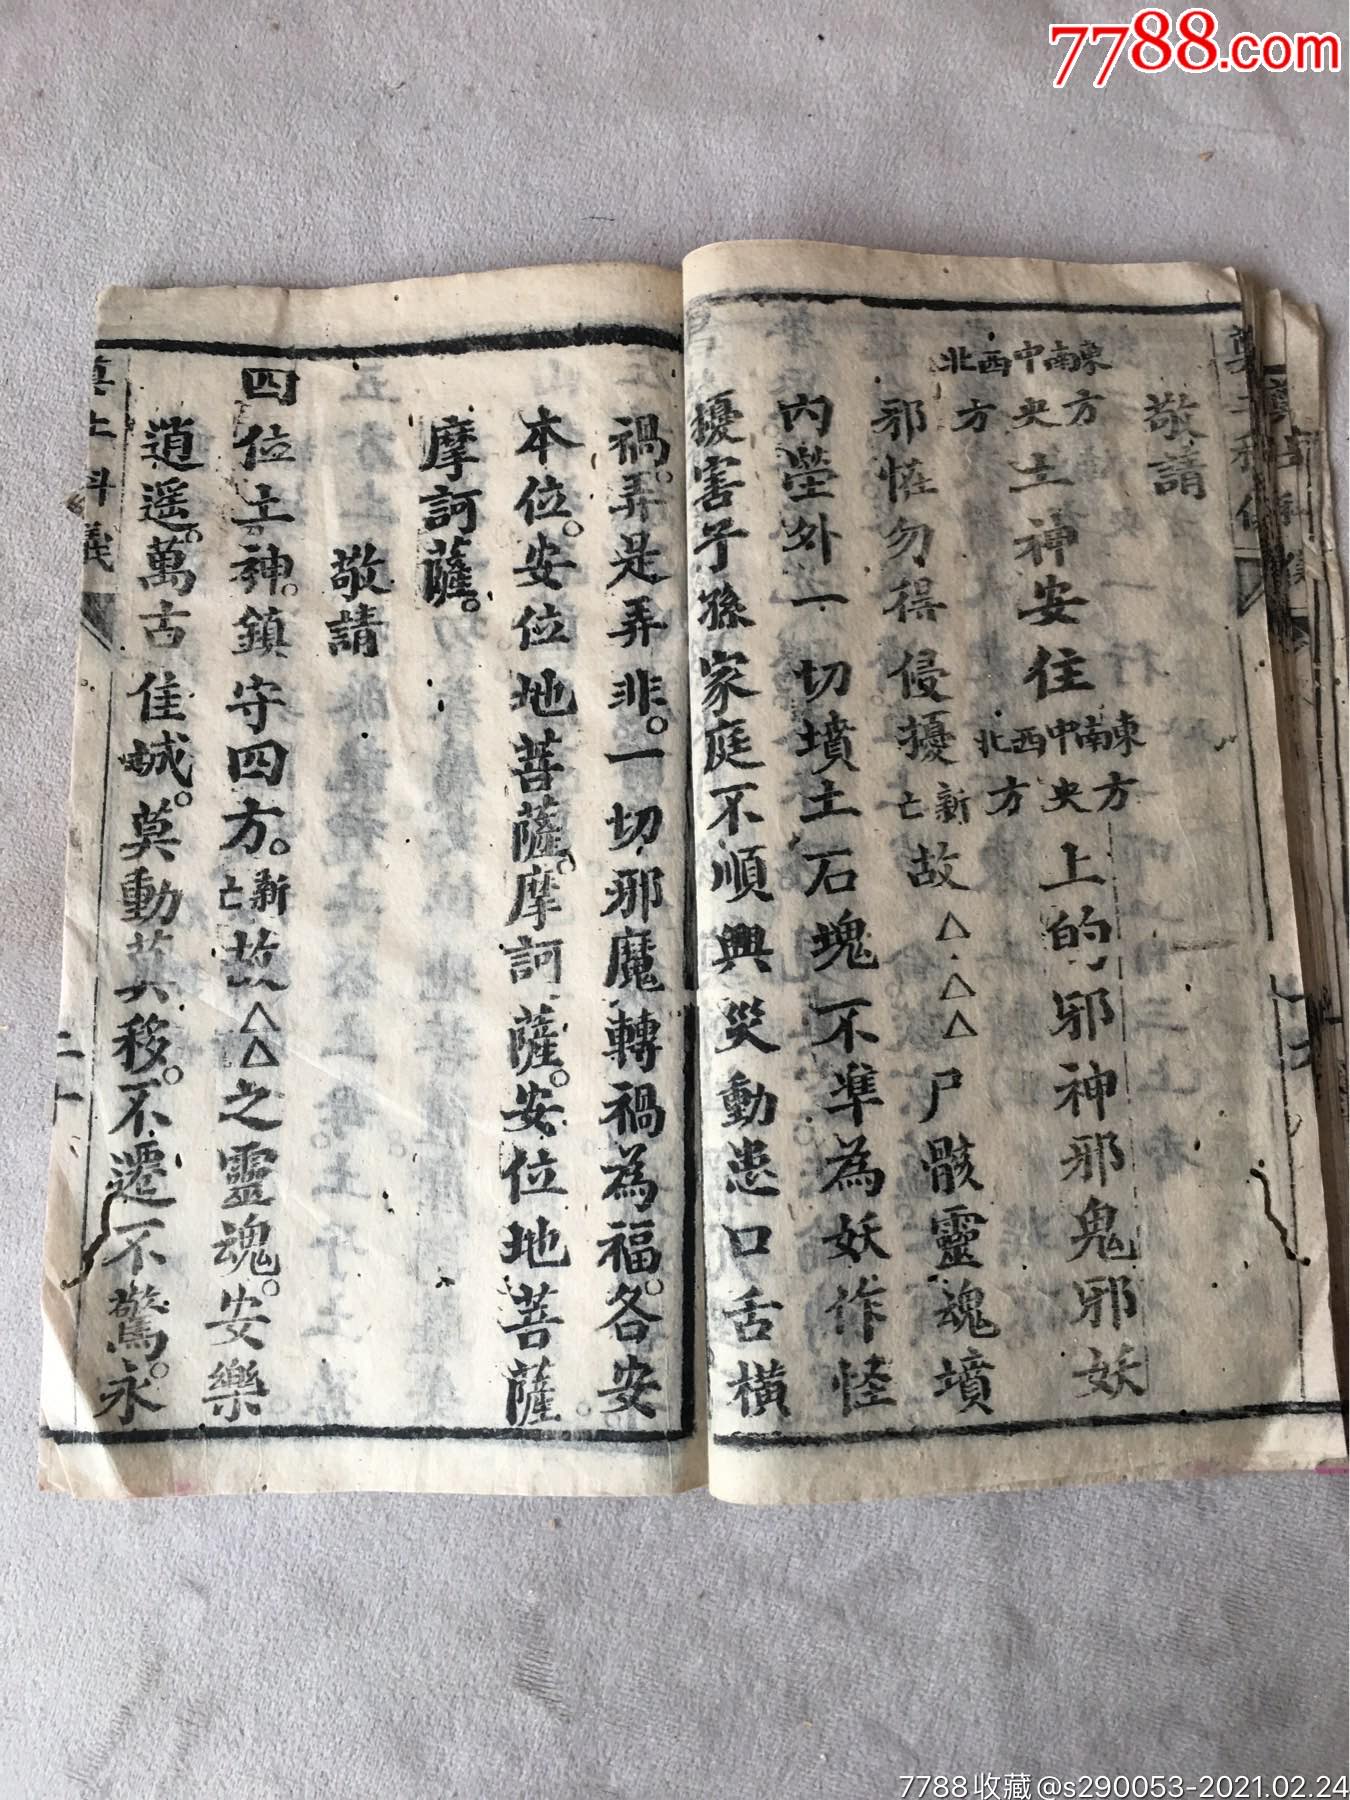 7788.com
敬請
東南中西北方央方土神安住東南中西北方央方上的邪神邪鬼邪妖
邪怪勿得侵擾新亡故△△△尸骸靈魂墳
内塋外一切墳土石塊不準為妖作怪
擾害子孫家庭不順興災動患口舌橫
禍。弄是弄非。一切邪魔轉禍為福。各安
本位。安位地菩薩。摩訶薩。安位地菩薩。
摩訶薩。
敬請
四位土神。鎮守四方。新亡故△△之靈魂。安樂
逍遥。萬古佳城。莫動莫移。不遷不驚。永
奠土科儀
二十
7788收藏@s290053-2021.02.24